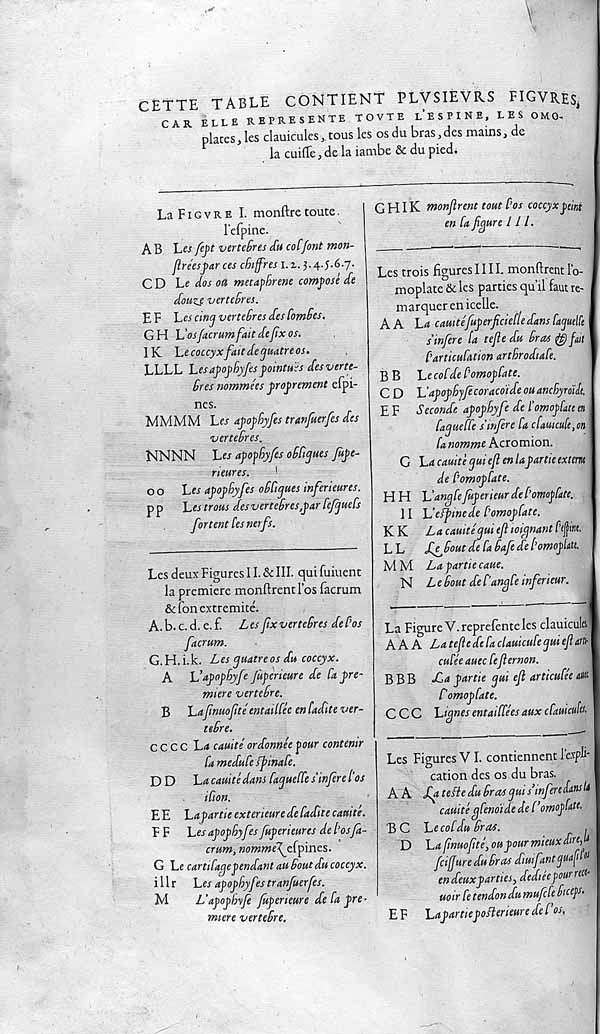 CETTE TABLE CONTIENT PLVSIEVRS FIGVRES,
CAR ELLE REPRESENTE TOVTE L'ESPINE, LES OMO-
plates, les clauicules, tous les os du bras, des mains, de
la cuiſſe, de la iambe & du pied.
La FIGVRE I. monſtre toute
l'eſpine.
A B Les ſept vertebres du col ſont mon-
ſtrées par ces chiffres 1. 2. 3. 4. 5. 6. 7.
C D Le dos ou metaphrene composé de
douze vertebres.
E F Les cinq vertebres des lombes.
G H L'os ſacrum fait de ſix os.
I K Le coccyx fait de quatre os.
LLLL Les apophyſes pointuës des verte-
bres nommées proprement eſpi-
nes.
MMMM Les apophyſes tranſuerſes des
vertebres.
NNNN Les apophyſes obliques ſupe-
rieures.
oo Les apophyſes obliques inferieures.
pp Les trous des vertebres, par leſquels
ſortent les nerfs.
Les deux Figures II. & III. qui ſuiuent
la premiere monſtrent l'os ſacrum
& ſon extremité.
A. b. c. d. e. f. Les ſix vertebres de l'os
ſacrum.
G. H. i. k. Les quatre os du coccyx.
A L'apophyſe ſuperieure de la pre-
miere vertebre.
B La ſinuoſité entaillée en ladite ver-
tebre.
CCCC La cauité ordonnée pour contenir
la medule ſpinale.
D D La cauité dans laquelle s'inſere l'os
ilion.
EE La partie exterieure de ladite cauité.
FF Les apophyſes ſuperieures de l'os ſa-
crum, nommez eſpines.
G Le cartilage pendant au bout du coccyx.
illr Les apophyſes tranſuerſes.
M L'apophyſe ſuperieure de la pre-
miere vertebre.
GHIK monſtrent tout l'os coccyx peint
en la figure III.
Les trois figures IIII. monſtrent l'o-
moplate & les parties qu'il faut re-
marquer en icelle.
A A La cauité ſuperficielle dans laquelle
s'inſere la teſte du bras & fait
l'articulation arthrodiale.
B B Le col de l'omoplate.
C D L'apophyſe coracoïde ou anchyroïde.
E F Seconde apophyſe de l'omoplate en
laquelle s'inſere la clauicule, on
la nomme Acromion.
G La cauité qui eſt en la partie externe
de l'omoplate.
H H L'angle ſuperieur de l'omoplate.
II L'eſpine de l'omoplate.
K K La cauité qui eſt ioignant l'eſpine.
L L Le bout de la baſe de l'omoplate.
M M La partie caue.
N Le bout de l'angle inferieur.
La Figure V. repreſente les clauicules
A A A La teſte de la clauicule qui eſt arti-
culée auec le ſternon.
BBB La partie qui eſt articulée auec
l'omoplate.
CCC Lignes entaillées aux clauicules.
Les Figures VI. contiennent l'expli-
cation des os du bras.
A A La teſte du bras qui s'inſere dans la
cauité glenoïde de l'omoplate.
B C Le col du bras.
D La ſinuoſité, ou pour mieux dire, la
ſciſſure du bras diuiſant quaſi l'os
en deux parties, dediée pour rece-
uoir le tendon du muſcle biceps.
E F La partie poſterieure de l'os.